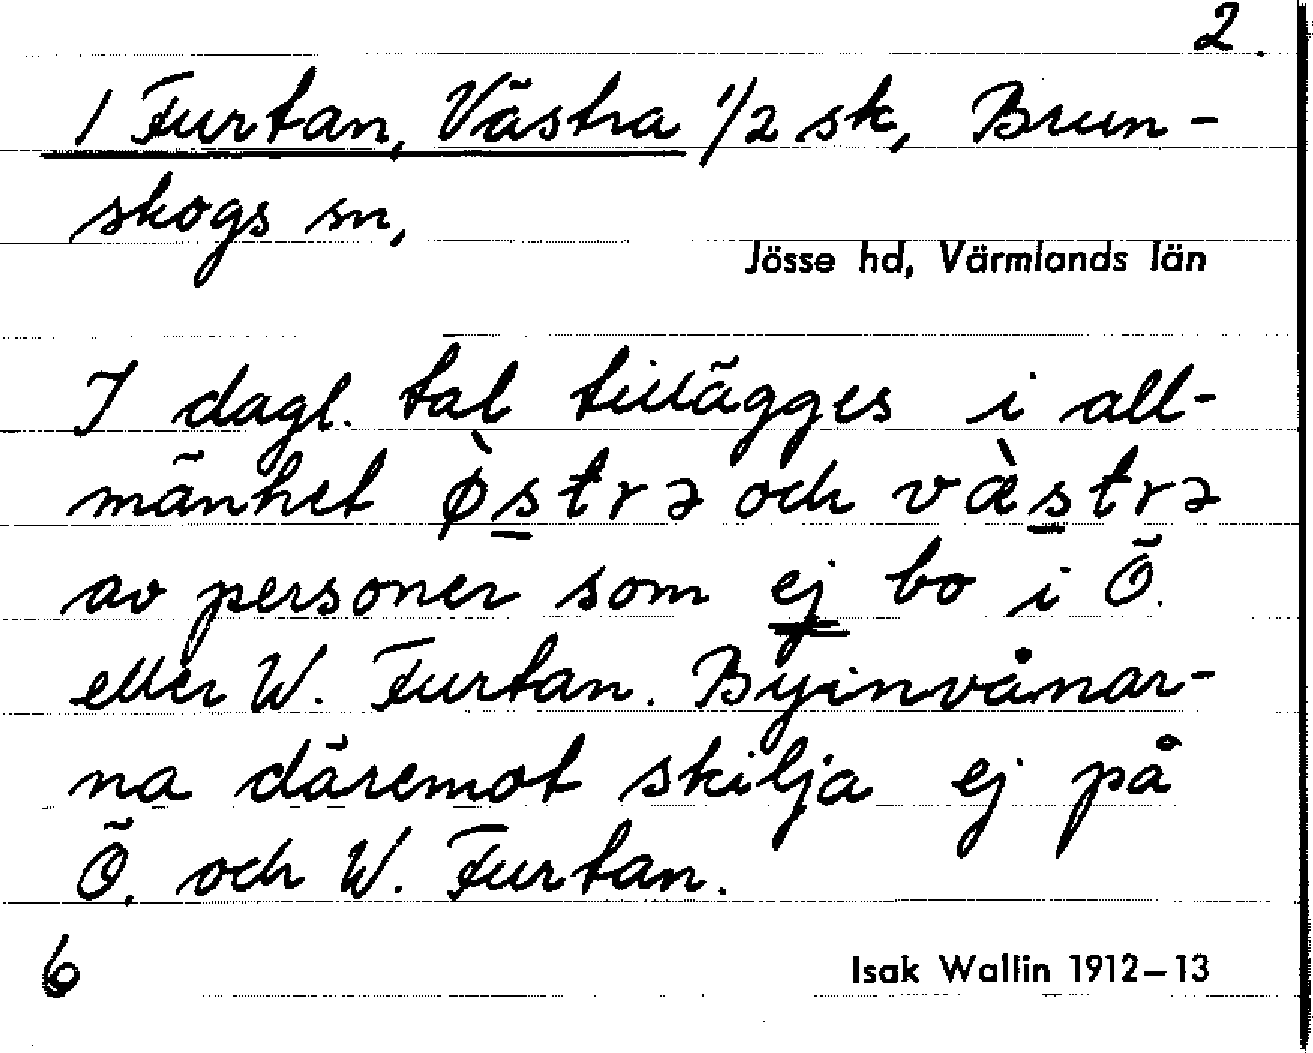 2.
1 Furtan, Västra 1/2 sk, Brun-
skogs sn,
Jösse hd, Värmlands län
I dagl. tal tillägges i all-
mänhet ø̀strə och væ̀strə
av personer som ej bo i Ö.
eller W. Furtan. Byinvånar-
na däremot skilja ej på
Ö. och W. Furtan.
6
Isak Wallin 1912–13